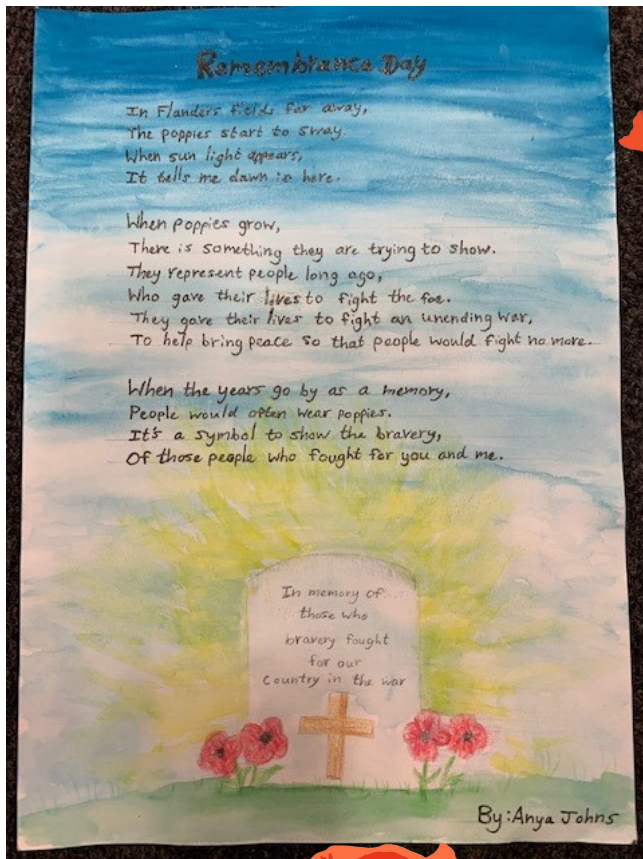 Remembrance Day
In Flanders fields far away,
The poppies start to sway.
When sun light appears,
It tells me dawn is here.
When poppies grow,
There is something they are trying to show.
They represent people long ago,
Who gave their lives to fight the foe.
They gave their lives to fight an unending war,
To help bring peace so that people would fight no more.
When the years go by as a memory,
People would often wear poppies.
It's a symbol to show the bravery,
Of those people who fought for you and me.
In memory of
those who
bravery fought
for our
country in the war
By: Anya Johns